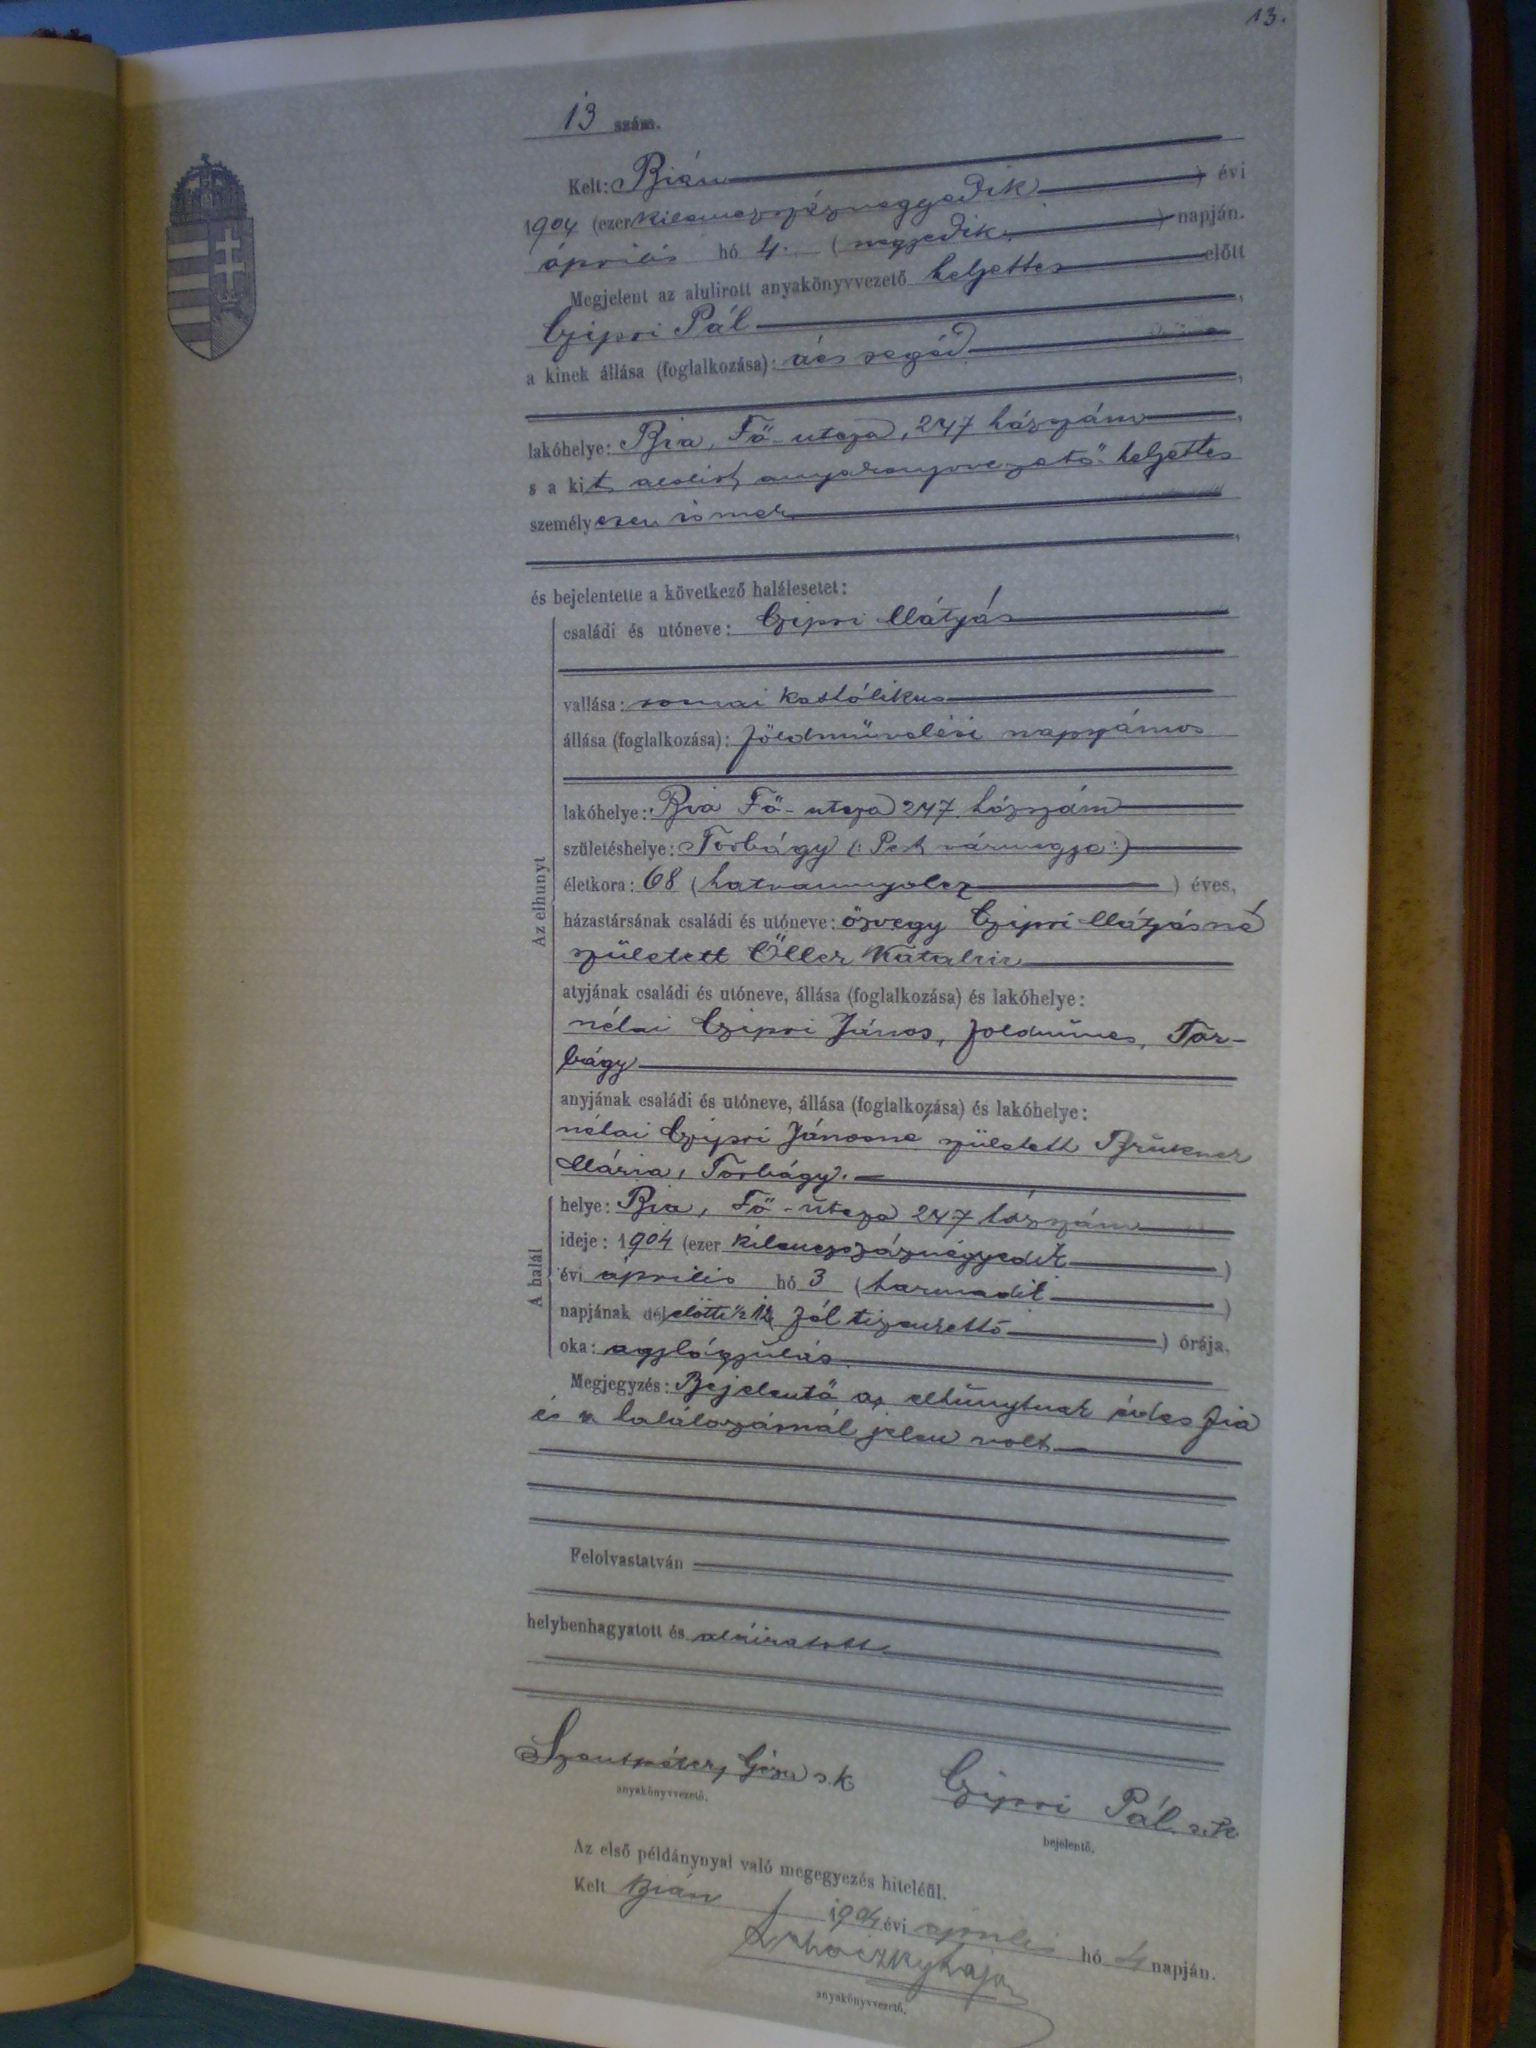 13.
13 szám.
Kelt: Bián
1904 (ezer kilenczszáznegyedik) évi
április hó 4. (negyedik) napján.
Megjelent az alulirott anyakönyvvezető helyettes előtt
Czipri Pál,
a kinek állása (foglalkozása): ács segéd
lakóhelye: Bia, Fő-utcza, 247 házszám,
s a kit alulirt anyakönyvvezető helyettes
személyesen ismer,
és bejelentette a következő halálesetet:
Az elhunyt
családi és utóneve: Czipri Mátyás
vallása: romai katólikus
állása (foglalkozása): földmüvelési napszámos
lakóhelye: Bia Fő-utcza 247. házszám
születéshelye: Torbágy (: Pest vármegye :)
életkora: 68 (hatvannyolcz) éves,
házastársának családi és utóneve: özvegy Czipri Mátyásné
született Öller Katalin
atyjának családi és utóneve, állása (foglalkozása) és lakóhelye:
néhai Czipri János, földmüves, Tor-
bágy
anyjának családi és utóneve, állása (foglalkozása) és lakóhelye:
néhai Czipri Jánosné született Brukner
Mária, Torbágy.
A halál
helye: Bia, Fő-utcza 247 házszám
ideje: 1904 (ezer kilenczszáznegyedik)
évi április hó 3 (harmadik)
napjának délelőtti ½ 12 (fél tizenkettő) órája.
oka: agylágyulás.
Megjegyzés: Bejelentő az elhunytnak édes fia
és a halálozásnál jelen volt.
Felolvastatván
helybenhagyatott és aláiratott
Szentpétery Géza s.k.
anyakönyvvezető.
Czipri Pál s.k.
bejelentő.
Az első példánynyal való megegyezés hiteléül.
Kelt Bián 1904 évi április hó 4 napján.
anyakönyvvezető.